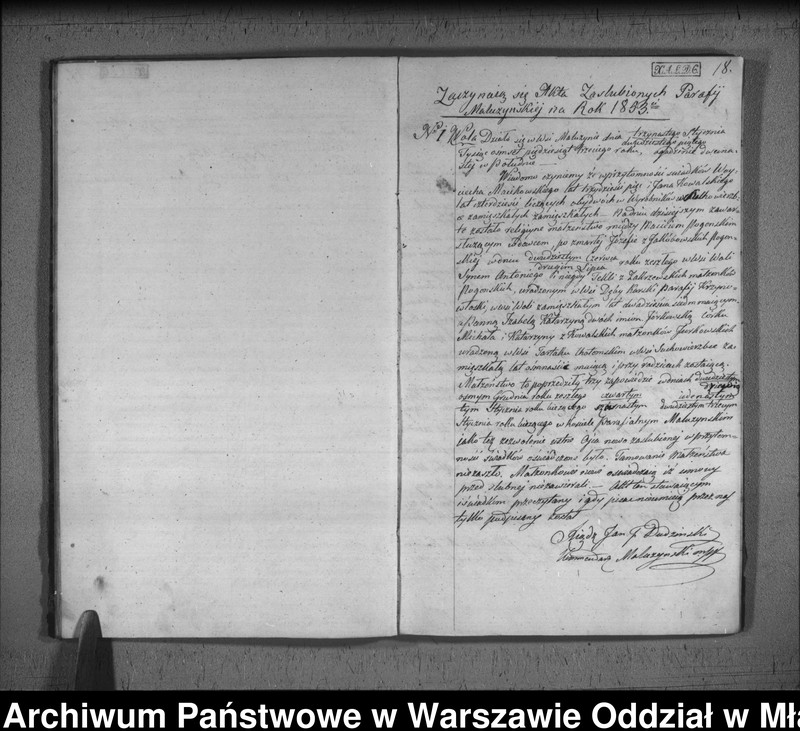 18.
Zaczynaią się Akta Zaslubionych Parafij
Maluzyńskiéj na Rok 1853.
No 1 Wola Działo się w Wsi Maluzynie dnia trzynastego Stycznia
dwudziestego piątego
Tysiąc osmset piędziesiąt trzeciego roku, o godzinie dwuna-
stej w Południe
Wiadomo czyniemy ze w przytomności swiadków Woy-
ciecha Maćkowskiego lat trzydzieści pięć i Jana Kowalskiego
lat czterdzieści liczących obydwóch Wyrobników w
zamieszkałych zamieszkałych – Na dniu dzisiejszym zawar-
te zostało religijne małzeństwo między Rogenskim
słuzącym Wdowcem, po zmarłej Józefie z Jakubowskich Rogen-
skiéj w dniu dwudziestym Czerwca roku zeszłego w Wsi Woli
drugim Lipca
Synem Antoniego i niegdy Tekli z Zakrzewskich małzonków
Rogenskich, urodzonym w Wsi Dęby Parafij Krzyno-
włoski, w Wsi Woli zamieszkałym lat dwadzieścia siedm maiącym,
a Panną Izabellą Katarzyną dwóch imion Jurkowską córką
Michała i Katarzyny z Kowalskich małzonków Jurkowskich
urodzoną w Wsi Tartaku w Wsi Suchowierzbce za-
mieszkałą lat ośmnaście maiącą i przy rodzicach zostaiącą.
Małzeństwo to poprzedziły trzy zapowiedzi w dniach dwudziestym
dziewią
osmym Grudnia roku zeszłego czwartym iedenastym
tym Stycznia roku bieżącego szesnastym dwudziestym trzecim
Stycznia roku bieżącego w kosciele Parafialnym Maluzynskim
jako też zezwolenie ustne Oyca nowo zaslubionej w przytom-
ności swiadków oswiadczone było. Tamowanie Małzeństwa
niezaszło. Małzonkowie nowi oswiadczaią iż umowy
przed slubnej niezawierali. – Akt ten stawaiącym
i swiadkom przeczytany i gdy pisac nieumieią przez nas
tylko podpisany został
Xiądz Jan F Dudzinski
Kommendarz Maluzynski mpp
Archiwum Państwowe w Warszawie Oddział w Mła